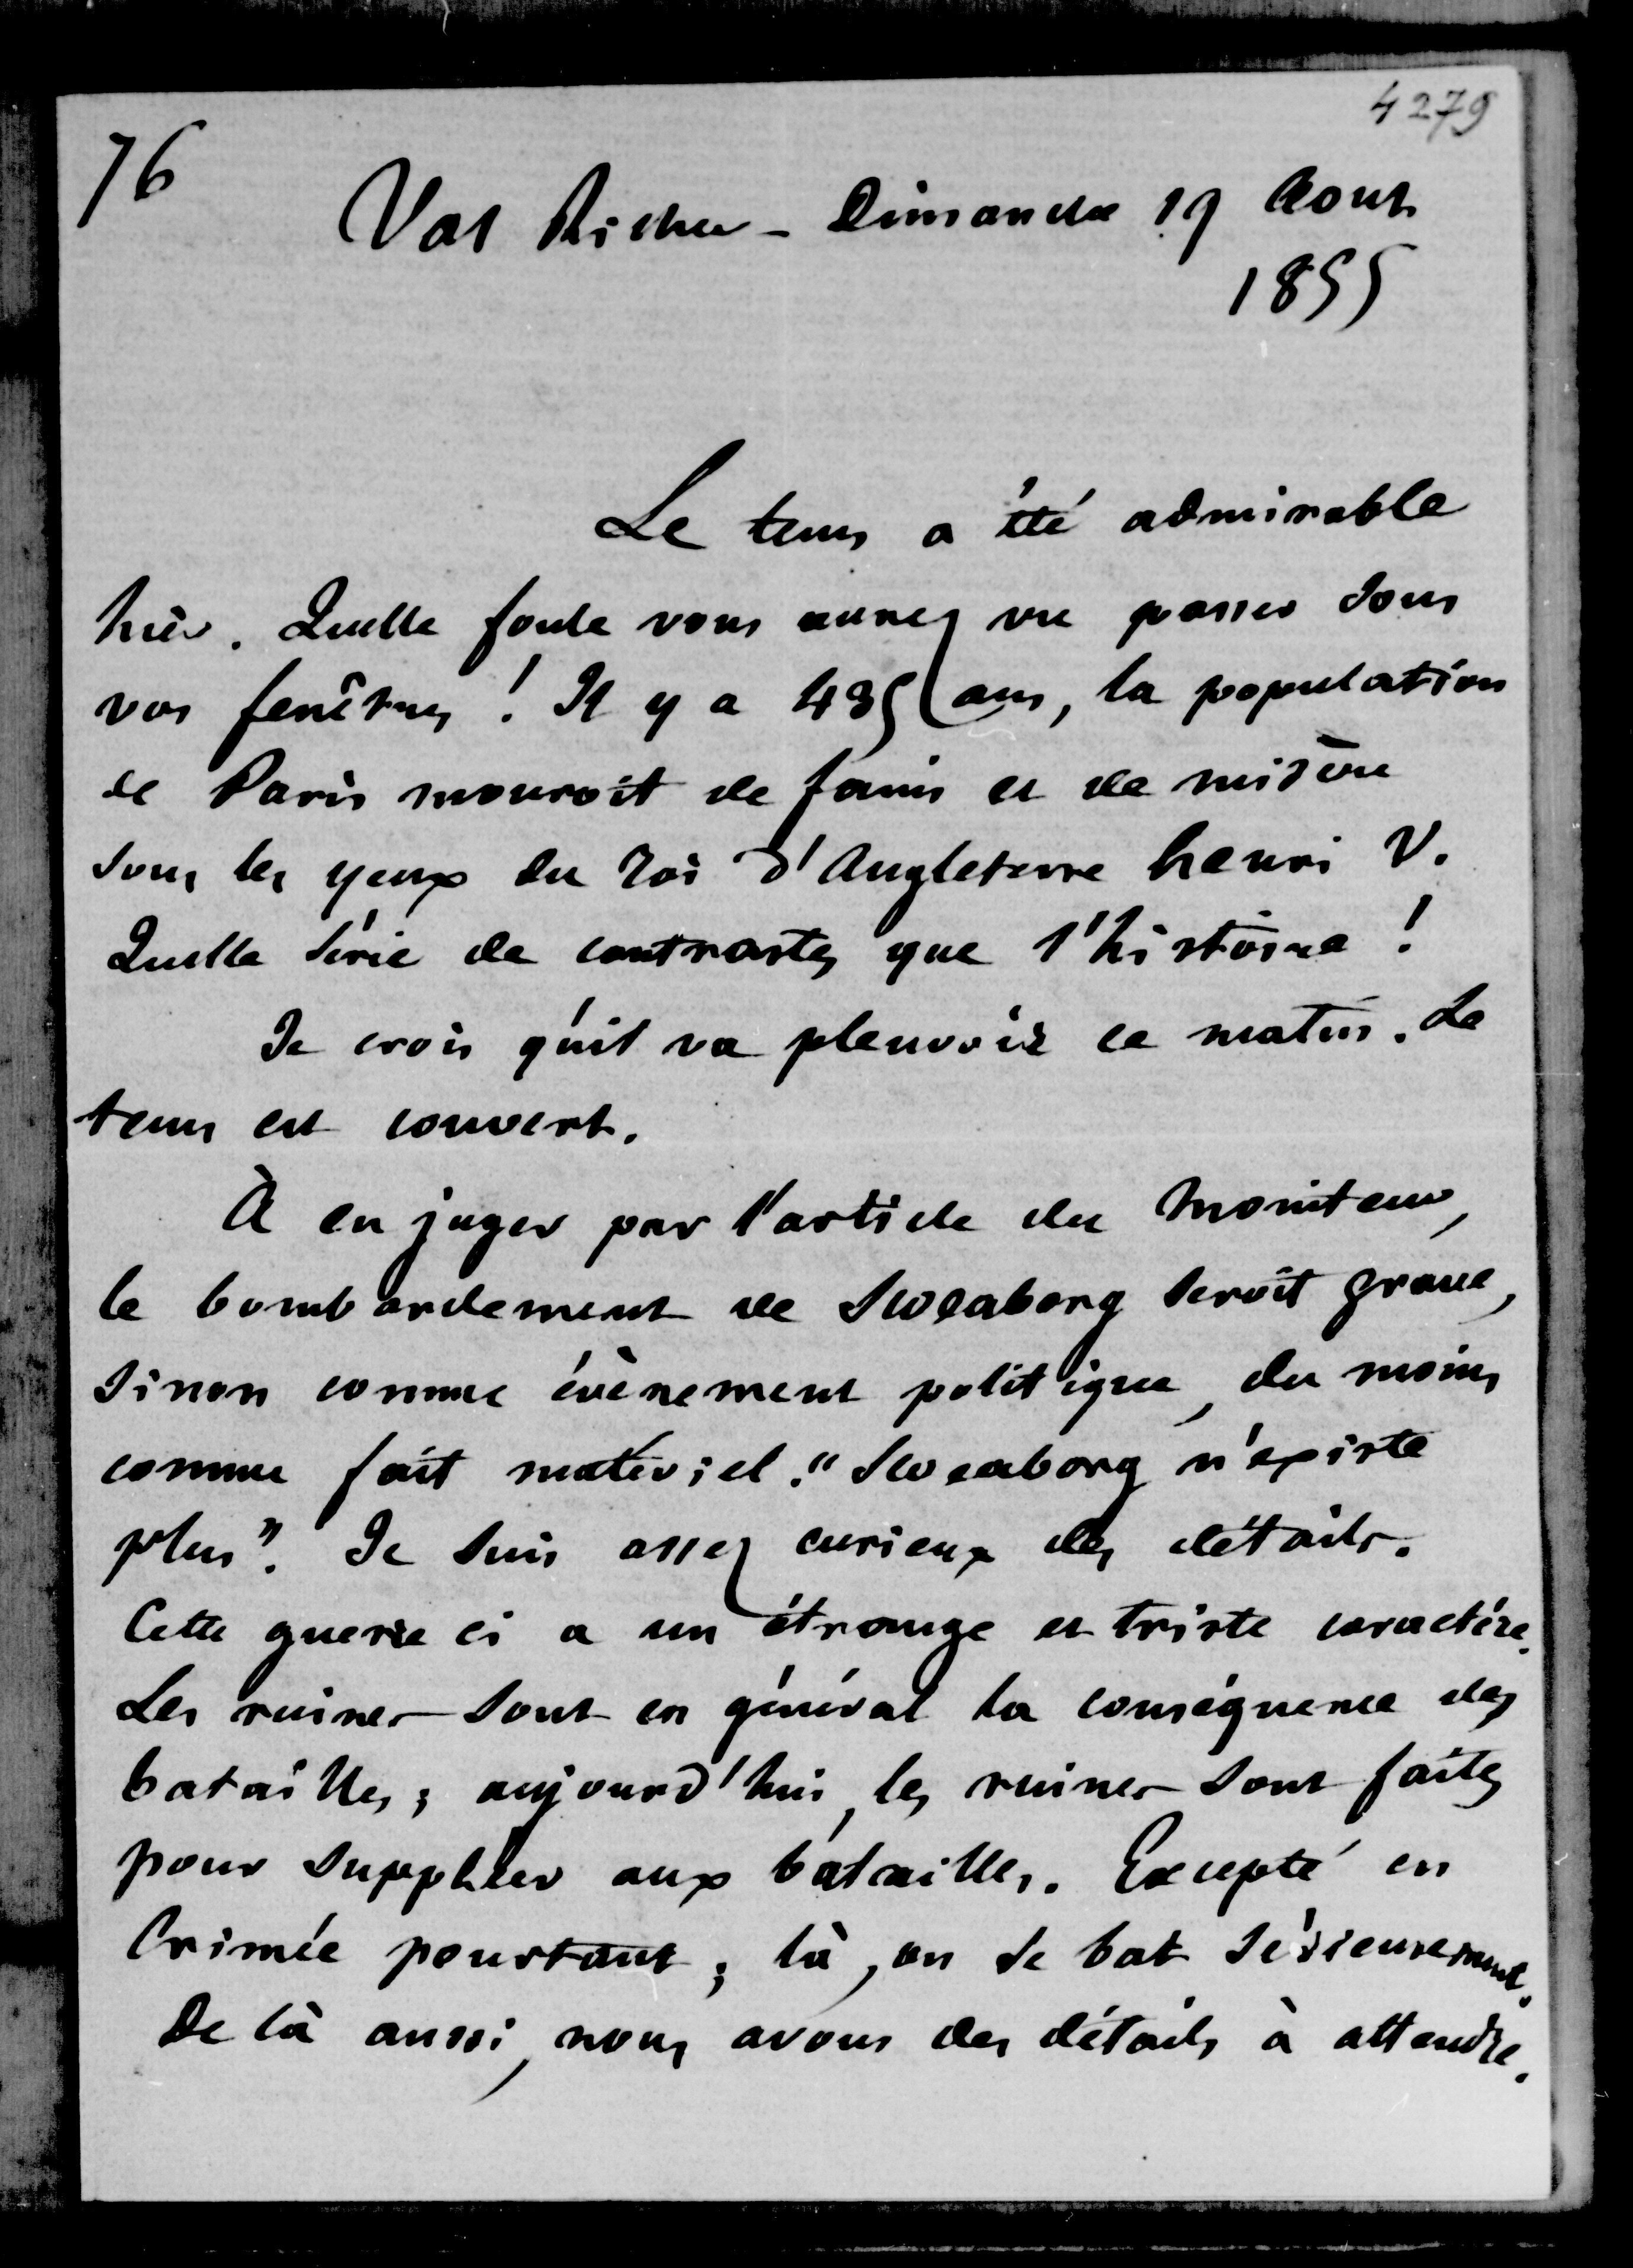 4279
76
Val Richer – Dimanche 19 Aout
1855
Le tems a été admirable
hier. Quelle foule vous aurez vu passer sous
vos fenêtres ! Il y a 435 ans, la population
de Paris mouroit de faim et de misère
sous les yeux du roi d'Angleterre henri V.
Quelle série de contrastes que l'histoire !
Je crois qu'il va pleuvoir ce matin. Le
tems est couvert.
À en juger par l'article du Moniteur,
le bombardement de Sweaborg seroit grave,
sinon comme évènement politique, du moins
comme fait matériel. "Sweaborg n'existe
plus". Je suis assez curieux des détails.
Cette guerre ci a un étrange et triste caractère.
Les ruines sont en général la conséquence des
batailles ; aujourd'hui, les ruines sont faites
pour suppléer aux batailles. Excepté en
Crimée pourtant ; là, on se bat sérieusement.
De là aussi, nous avons des détails à attendre.